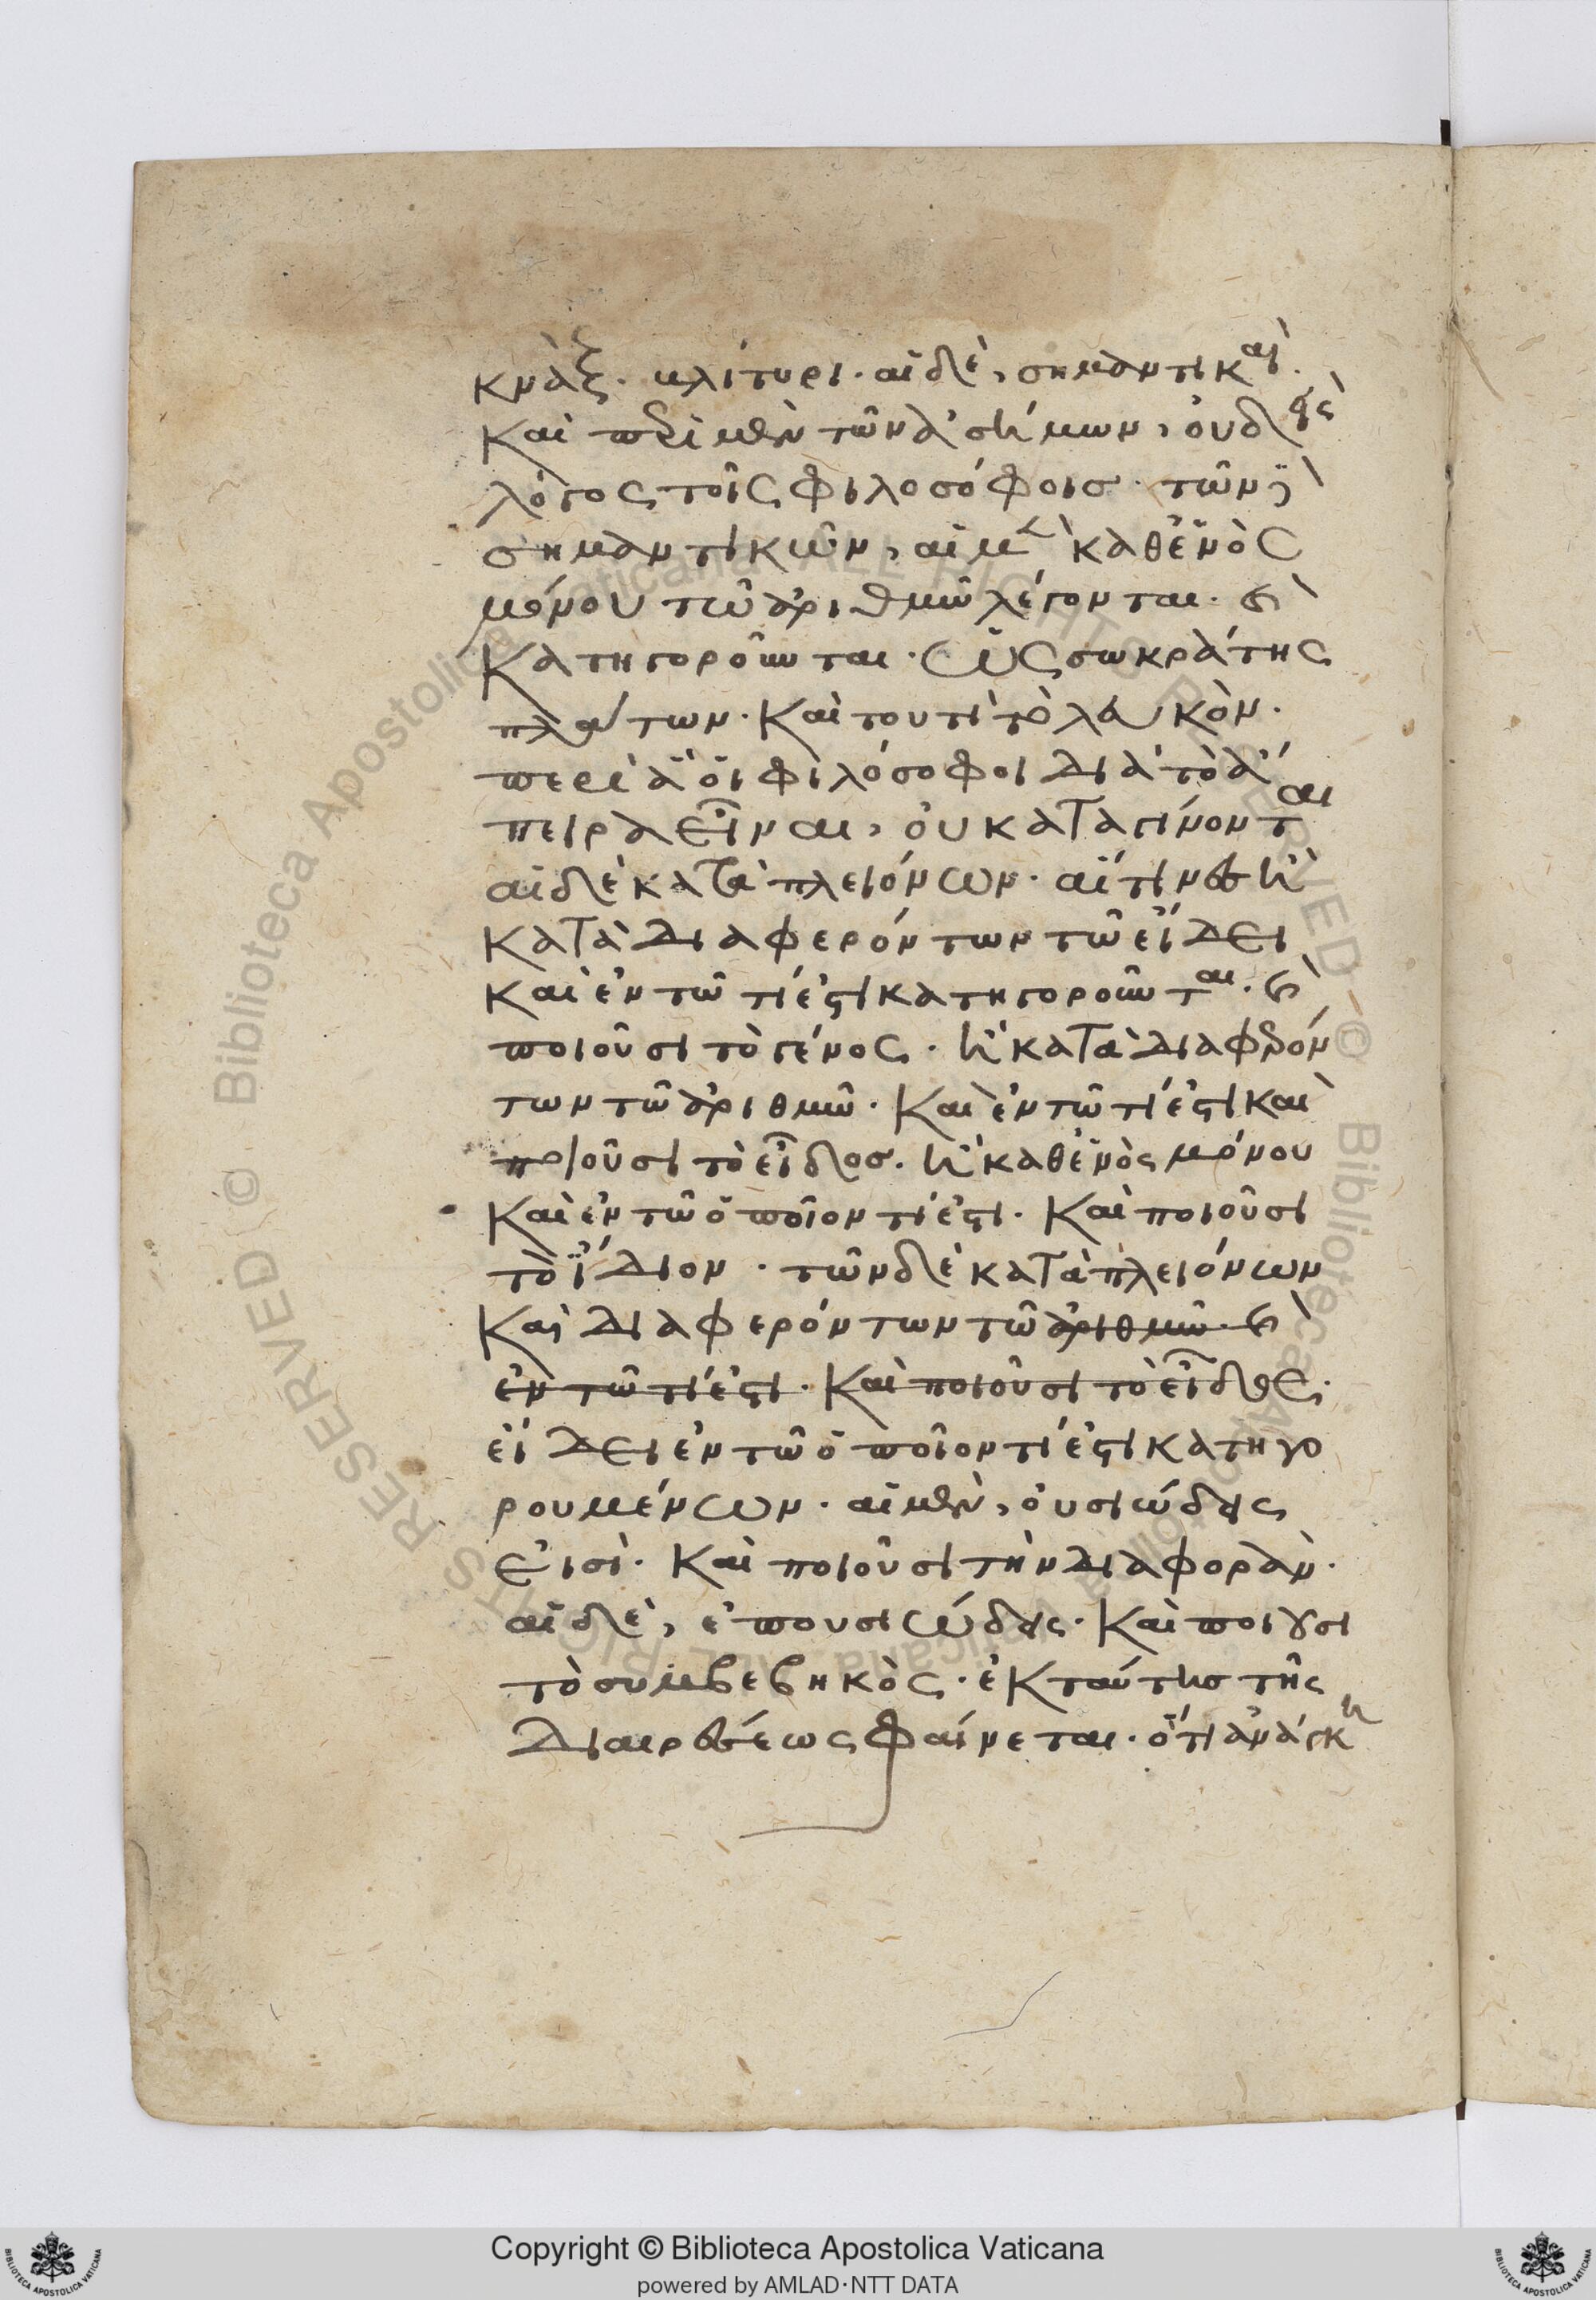 κνὰξ. κλίτυρι. αἱ δὲ, σημαντικαὶ.
Καὶ περὶ μὲν τῶν ἀσήμων, οὐδεὶς
λόγος τοῖς φιλοσόφοισ. τῶν δὲ
σημαντικῶν, αἱ μὲν καθενὸς
μόνου τῶ ἀριθμῶ λέγονται. καὶ
Κατηγοροῦνται. ὡς σωκράτης
πλάτων. Καὶ τουτὶ τὸ λευκὸν.
περὶ ἃ οἱ φιλόσοφοι διὰ τὸ ἄ
πειρα εἶναι, οὐ καταγίνονται
αἱ δὲ κατὰ πλειόνων. αἵτινες ἢ
κατὰ διαφερόντων τῶ εἴδει
καὶ ἐν τῶ τί ἐστι κατηγοροῦνται. καὶ
ποιοῦσι τὸ γένος. ἢ κατὰ διαφερόν
των τῶ ἀριθμῶ. Καὶ ἐν τῶ τί ἐστι καὶ
ποιοῦσι τὸ εἶδοσ. ἢ καθενὸς μόνου
Καὶ ἐν τῶ ὁποῖον τί ἐστι. Καὶ ποιοῦσι
τὸ ἴδιον. τῶν δὲ κατὰ πλειόνων
Καὶ διαφερόντων τῶ ἀριθμῶ. καὶ
ἐν τῶ τί ἐστι. Καὶ ποιοῦσι τὸ εἶδος.
εἴδει ἐν τῶ ὁποῖον τί ἐστι κατηγο
ρουμένων. αἱ μὲν, οὐσιώδεις
εἰσὶ. Καὶ ποιοῦσι τὴν διαφορὰν.
αἱ δὲ, ἐπουσιώδεις. Καὶ ποιουσι
τὸ συμβεβηκὸς. ἐκ ταύτησ τῆς
Διαιρέσεως φαίνεται. ὅτι ἀνάγκη
Copyright © Biblioteca Apostolica Vaticana
powered by AMLAD·NTT DATA